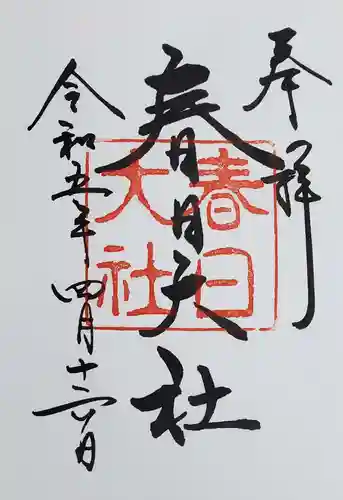 奉拝
春日大社
令和五年四月十六日
春日
大社